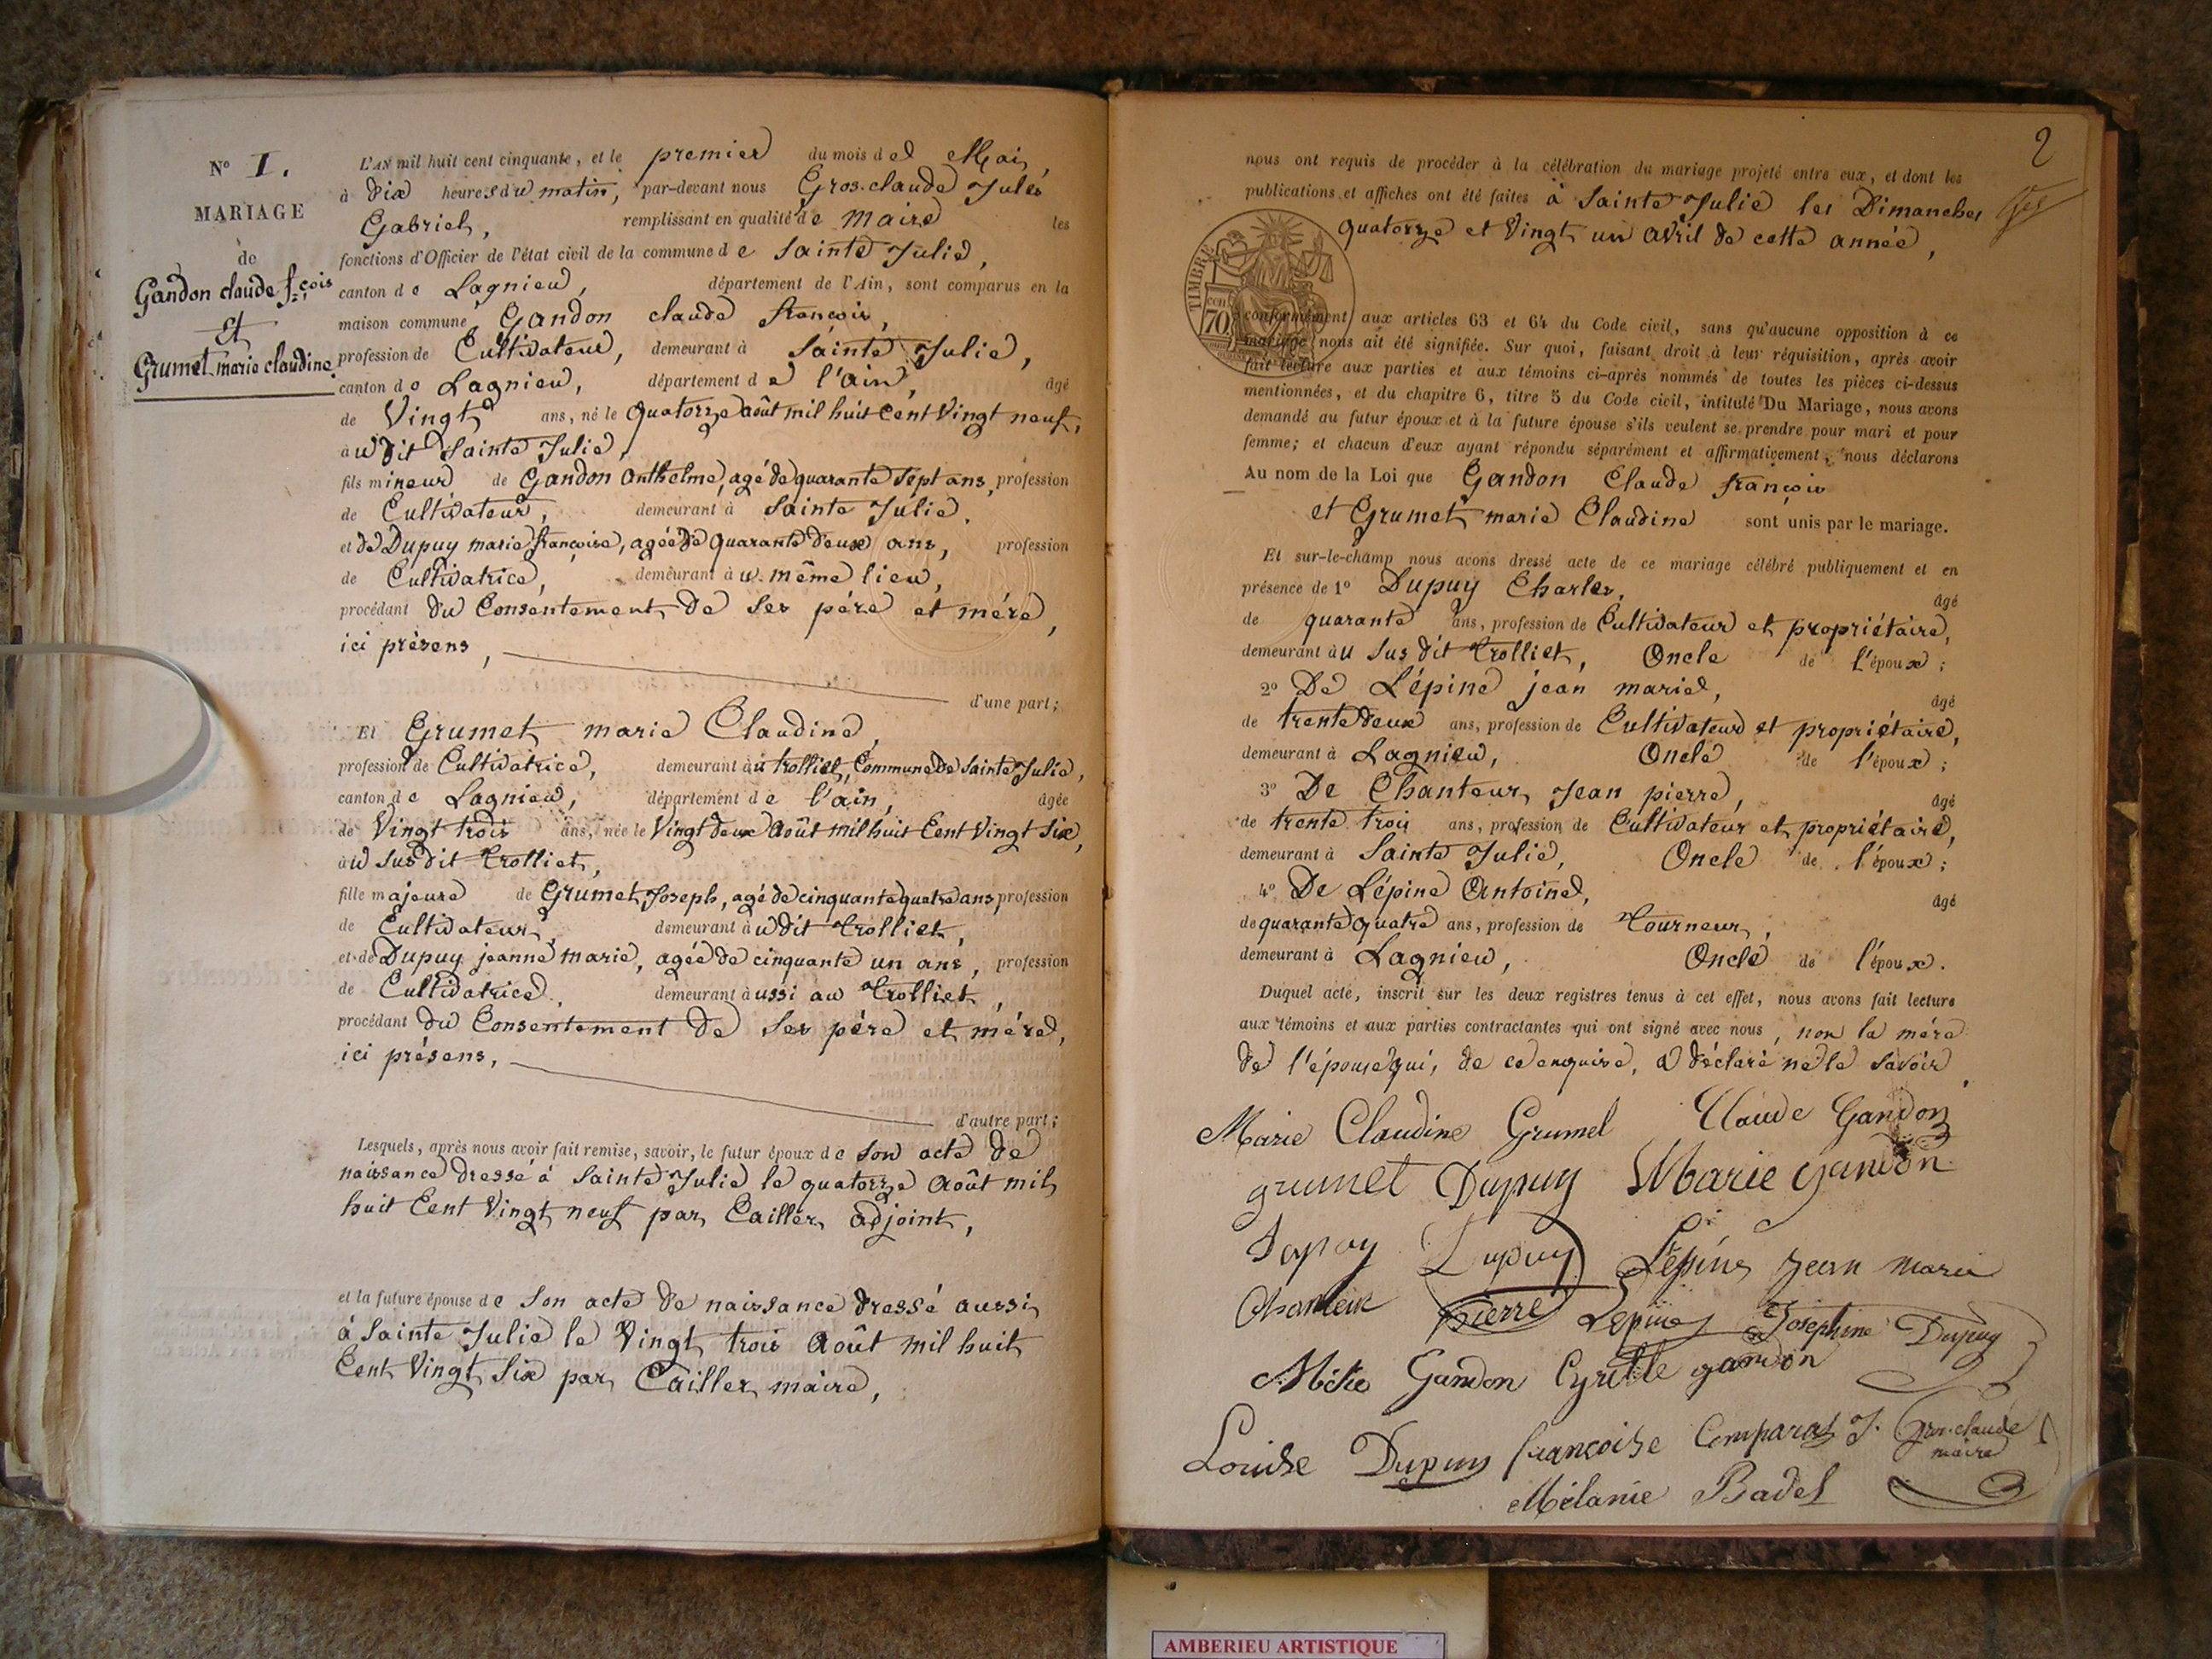 N° 1.
MARIAGE
de
Gandon claude f.çois
Et
Grumet marie claudine.
L'AN mil huit cent cinquante, et le premier du mois de Mai,
à dix heures du matin, par-devant nous Gros-claude Jules
Gabriel, remplissant en qualité de maire les
fonctions d'Officier de l'état civil de la commune de Sainte Julie,
canton de Lagnieu, département de l'Ain, sont comparus en la
maison commune, Gandon claude françois,
profession de Cultivateur, demeurant à Sainte Julie,
canton de Lagnieu, département de l'ain, âgé
de Vingt ans, né le quatorze août mil huit Cent Vingt neuf,
au dit Sainte Julie,
fils mineur de Gandon Anthelme, agé de quarante sept ans, profession
de Cultivateur, demeurant à Sainte Julie,
et de Dupuy marie françoise, agée de quarante deux ans, profession
de Cultivatrice, demeurant au même lieu,
procédant du Consentement de ses père et mère,
ici présens,
d'une part;
Et Grumet marie Claudine,
profession de Cultivatrice, demeurant au trolliet, Commune de Sainte Julie,
canton de Lagnieu, département de l'ain, âgée
de Vingt trois ans, née le Vingt deux Août mil huit Cent Vingt Six,
au sus dit trolliet,
fille majeure de Grumet Joseph, agé de cinquante quatre ans, profession
de Cultivateur, demeurant au dit trolliet,
et de Dupuy jeanne marie, agée de cinquante un ans, profession
de Cultivatrice, demeurant aussi au trolliet,
procédant du Consentement de Ses père et mère,
ici présens,
d'autre part;
Lesquels, après nous avoir fait remise, savoir, le futur époux de son acte de
naissance dressé à Sainte Julie le quatorze Août mil
huit Cent Vingt neuf par Cailler adjoint,
et la future épouse de son acte de naissance dressé aussi
à Sainte Julie le Vingt trois Août mil huit
Cent Vingt Six par Cailler maire,
2
nous ont requis de procéder à la célébration du mariage projeté entre eux, et dont les
publications et affiches ont été faites à Sainte Julie les Dimanches
quatorze et Vingt un avril de cette année,
TIMBRE
70
conformément aux articles 63 et 64 du Code civil, sans qu'aucune opposition à ce
mariage nous ait été signifiée. Sur quoi, faisant droit à leur réquisition, après avoir
fait lecture aux parties et aux témoins ci-après nommés de toutes les pièces ci-dessus
mentionnées, et du chapitre 6, titre 5 du Code civil, intitulé Du Mariage, nous avons
demandé au futur époux et à la future épouse s'ils veulent se prendre pour mari et pour
femme; et chacun d'eux ayant répondu séparément et affirmativement, nous déclarons
Au nom de la Loi que Gandon Claude françois
et Grumet marie Claudine sont unis par le mariage.
Et sur-le-champ nous avons dressé acte de ce mariage célébré publiquement et en
présence de 1° Dupuy Charles, âgé
de quarante ans, profession de Cultivateur et propriétaire,
demeurant au sus dit trolliet, Oncle de l'époux;
2° De Lépine jean marie, âgé
de trente deux ans, profession de Cultivateur et propriétaire,
demeurant à Lagnieu, Oncle de l'époux;
3° De Chanteur Jean pierre, âgé
de trente trois ans, profession de Cultivateur et propriétaire,
demeurant à Sainte Julie, Oncle de l'époux;
4° De Lépine Antoine, âgé
de quarante quatre ans, profession de tourneur,
demeurant à Lagnieu, Oncle de l'époux.
Duquel acte, inscrit sur les deux registres tenus à cet effet, nous avons fait lecture
aux témoins et aux parties contractantes qui ont signé avec nous, non la mère
de l'épouse qui, de ce enquise, a déclaré ne le savoir,
Marie Claudine Grumel Claude Gandon
grumet Dupuy Marie gandon
Dupuy Lépine Jean Marie
Pierre Lépine Josephine Dupuy
Gandon Cyrille gandon
Louise Dupuy françoise Comparat J. Gros-claude
maire
Mélanie Badel
AMBERIEU ARTISTIQUE